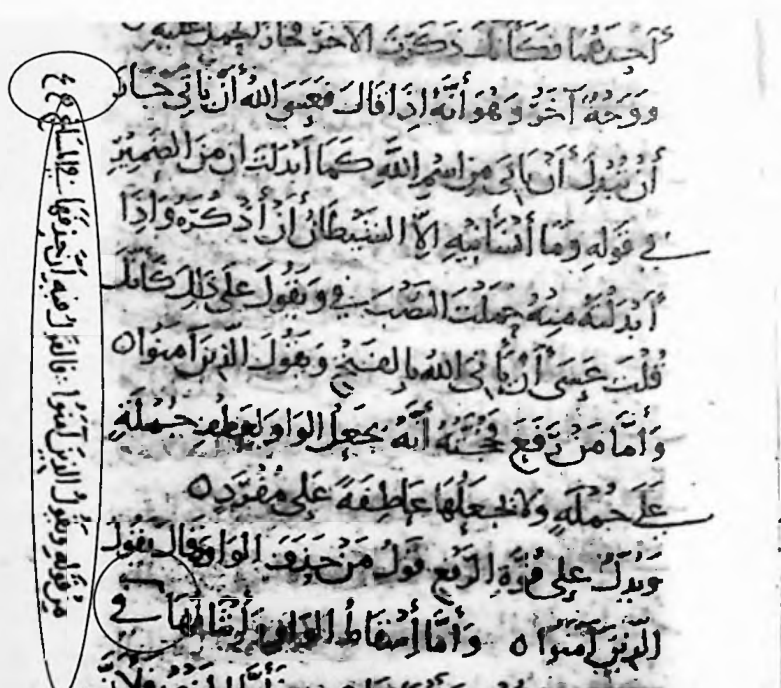 أحدهما فكأنك ذكرت الآخر فجاز لحمل عليه
ووجه آخر وهو أنه إذا قال فعسى الله أن يأتي جاز
أن تبدل أن يأتي من اسم الله كما أبدلت أن من الضمير
في قوله وما أنسانيه إلا الشيطان أن أذكره وإذا
أبدلته منه حملت النصب في ويقول على ذلك كأنك
قلت عسى أن يأتي الله بالفتح ويقول الذين آمنوا
وأما من رفع فحجته أنه يجعل الواو لعطف جملة
على جملة ولا يجعلها عاطفة على مفرد
ويدل على قوة الرفع قول من حذف الواو فقال يقول
الذين آمنوا وأما إسقاط الواو وإثباتها في
من قوله ويقول الذين آمنوا فالقول فيه أن حذفها